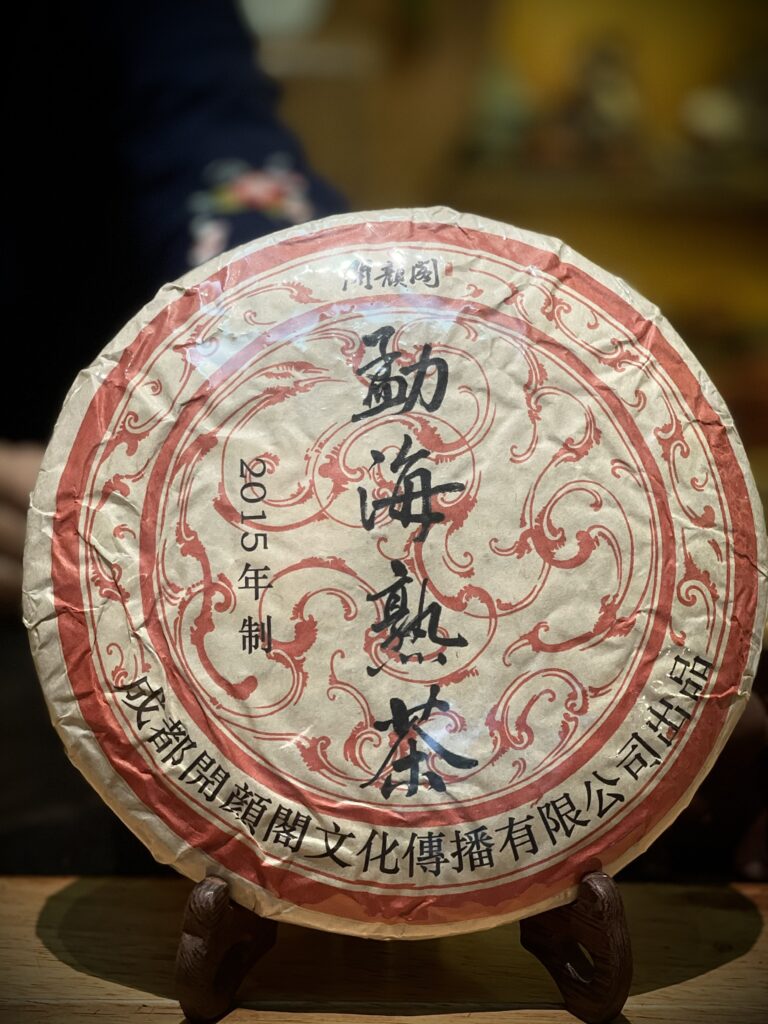 開顔閣
勐海熟茶
2015年制
成都開顔閣文化傳播有限公司出品